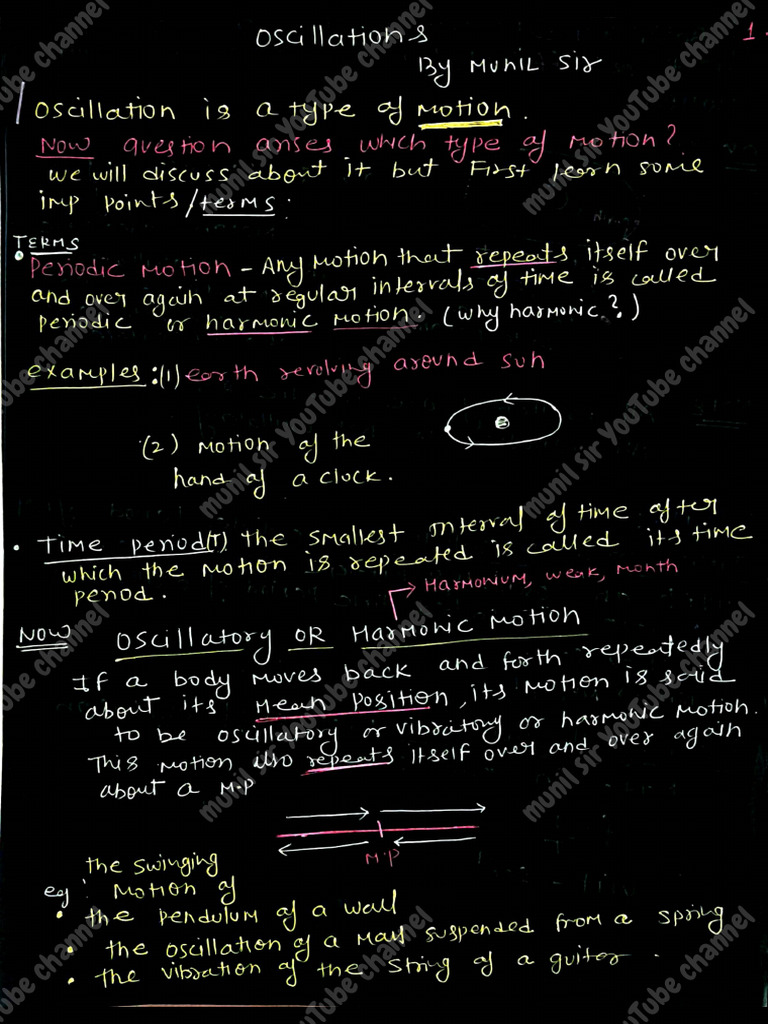 Oscillations
1.
By Munil Sir
Oscillation is a type of Motion.
Now question arises which type of Motion?
we will discuss about it but First learn some
imp points/terms:
TERMS
• Periodic Motion - Any Motion that repeats itself over
and over again at regular intervals of time is called
periodic or harmonic motion. (why harmonic?)
examples: (1) earth revolving around sun
(2) Motion of the
hand of a clock.
• Time period(T) the smallest interval of time after
which the motion is repeated is called its time
period.
Harmonium, weak, month
Now Oscillatory OR Harmonic Motion
If a body moves back and forth repeatedly
about its Mean Position, its motion is said
to be oscillatory or vibratory or harmonic motion.
This Motion also repeats itself over and over again
about a M.P
M.P
the swinging
eg: Motion of
• the pendulum of a wall
• the oscillation of a Mass suspended from a spring
• the vibration of the string of a guitar.
munil sir YouTube channel